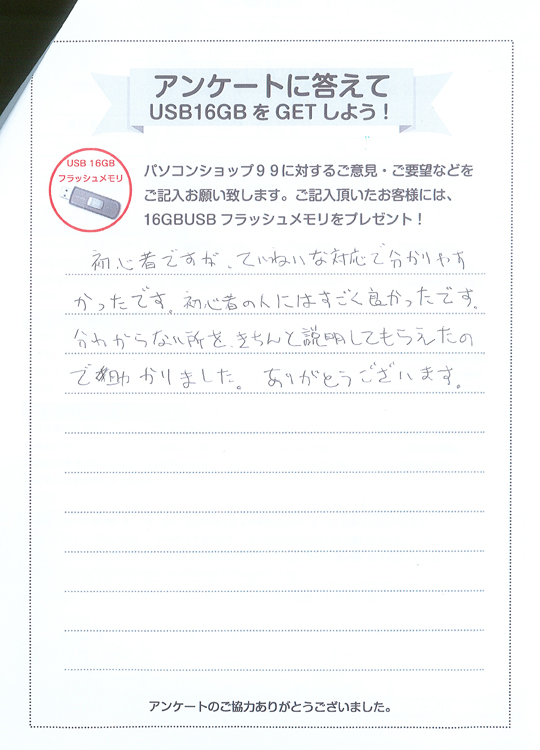 アンケートに答えて
USB16GBをGETしよう！
USB 16GB
フラッシュメモリ
パソコンショップ９９に対するご意見・ご要望などを
ご記入お願い致します。ご記入頂いたお客様には、
16GBUSBフラッシュメモリをプレゼント！
初心者ですが、ていねいな対応で分かりやす
かったです。初心者の人にはすごく良かったです。
分わからない所を、きちんと説明してもらえたの
で助かりました。ありがとうございます。
アンケートのご協力ありがとうございました。